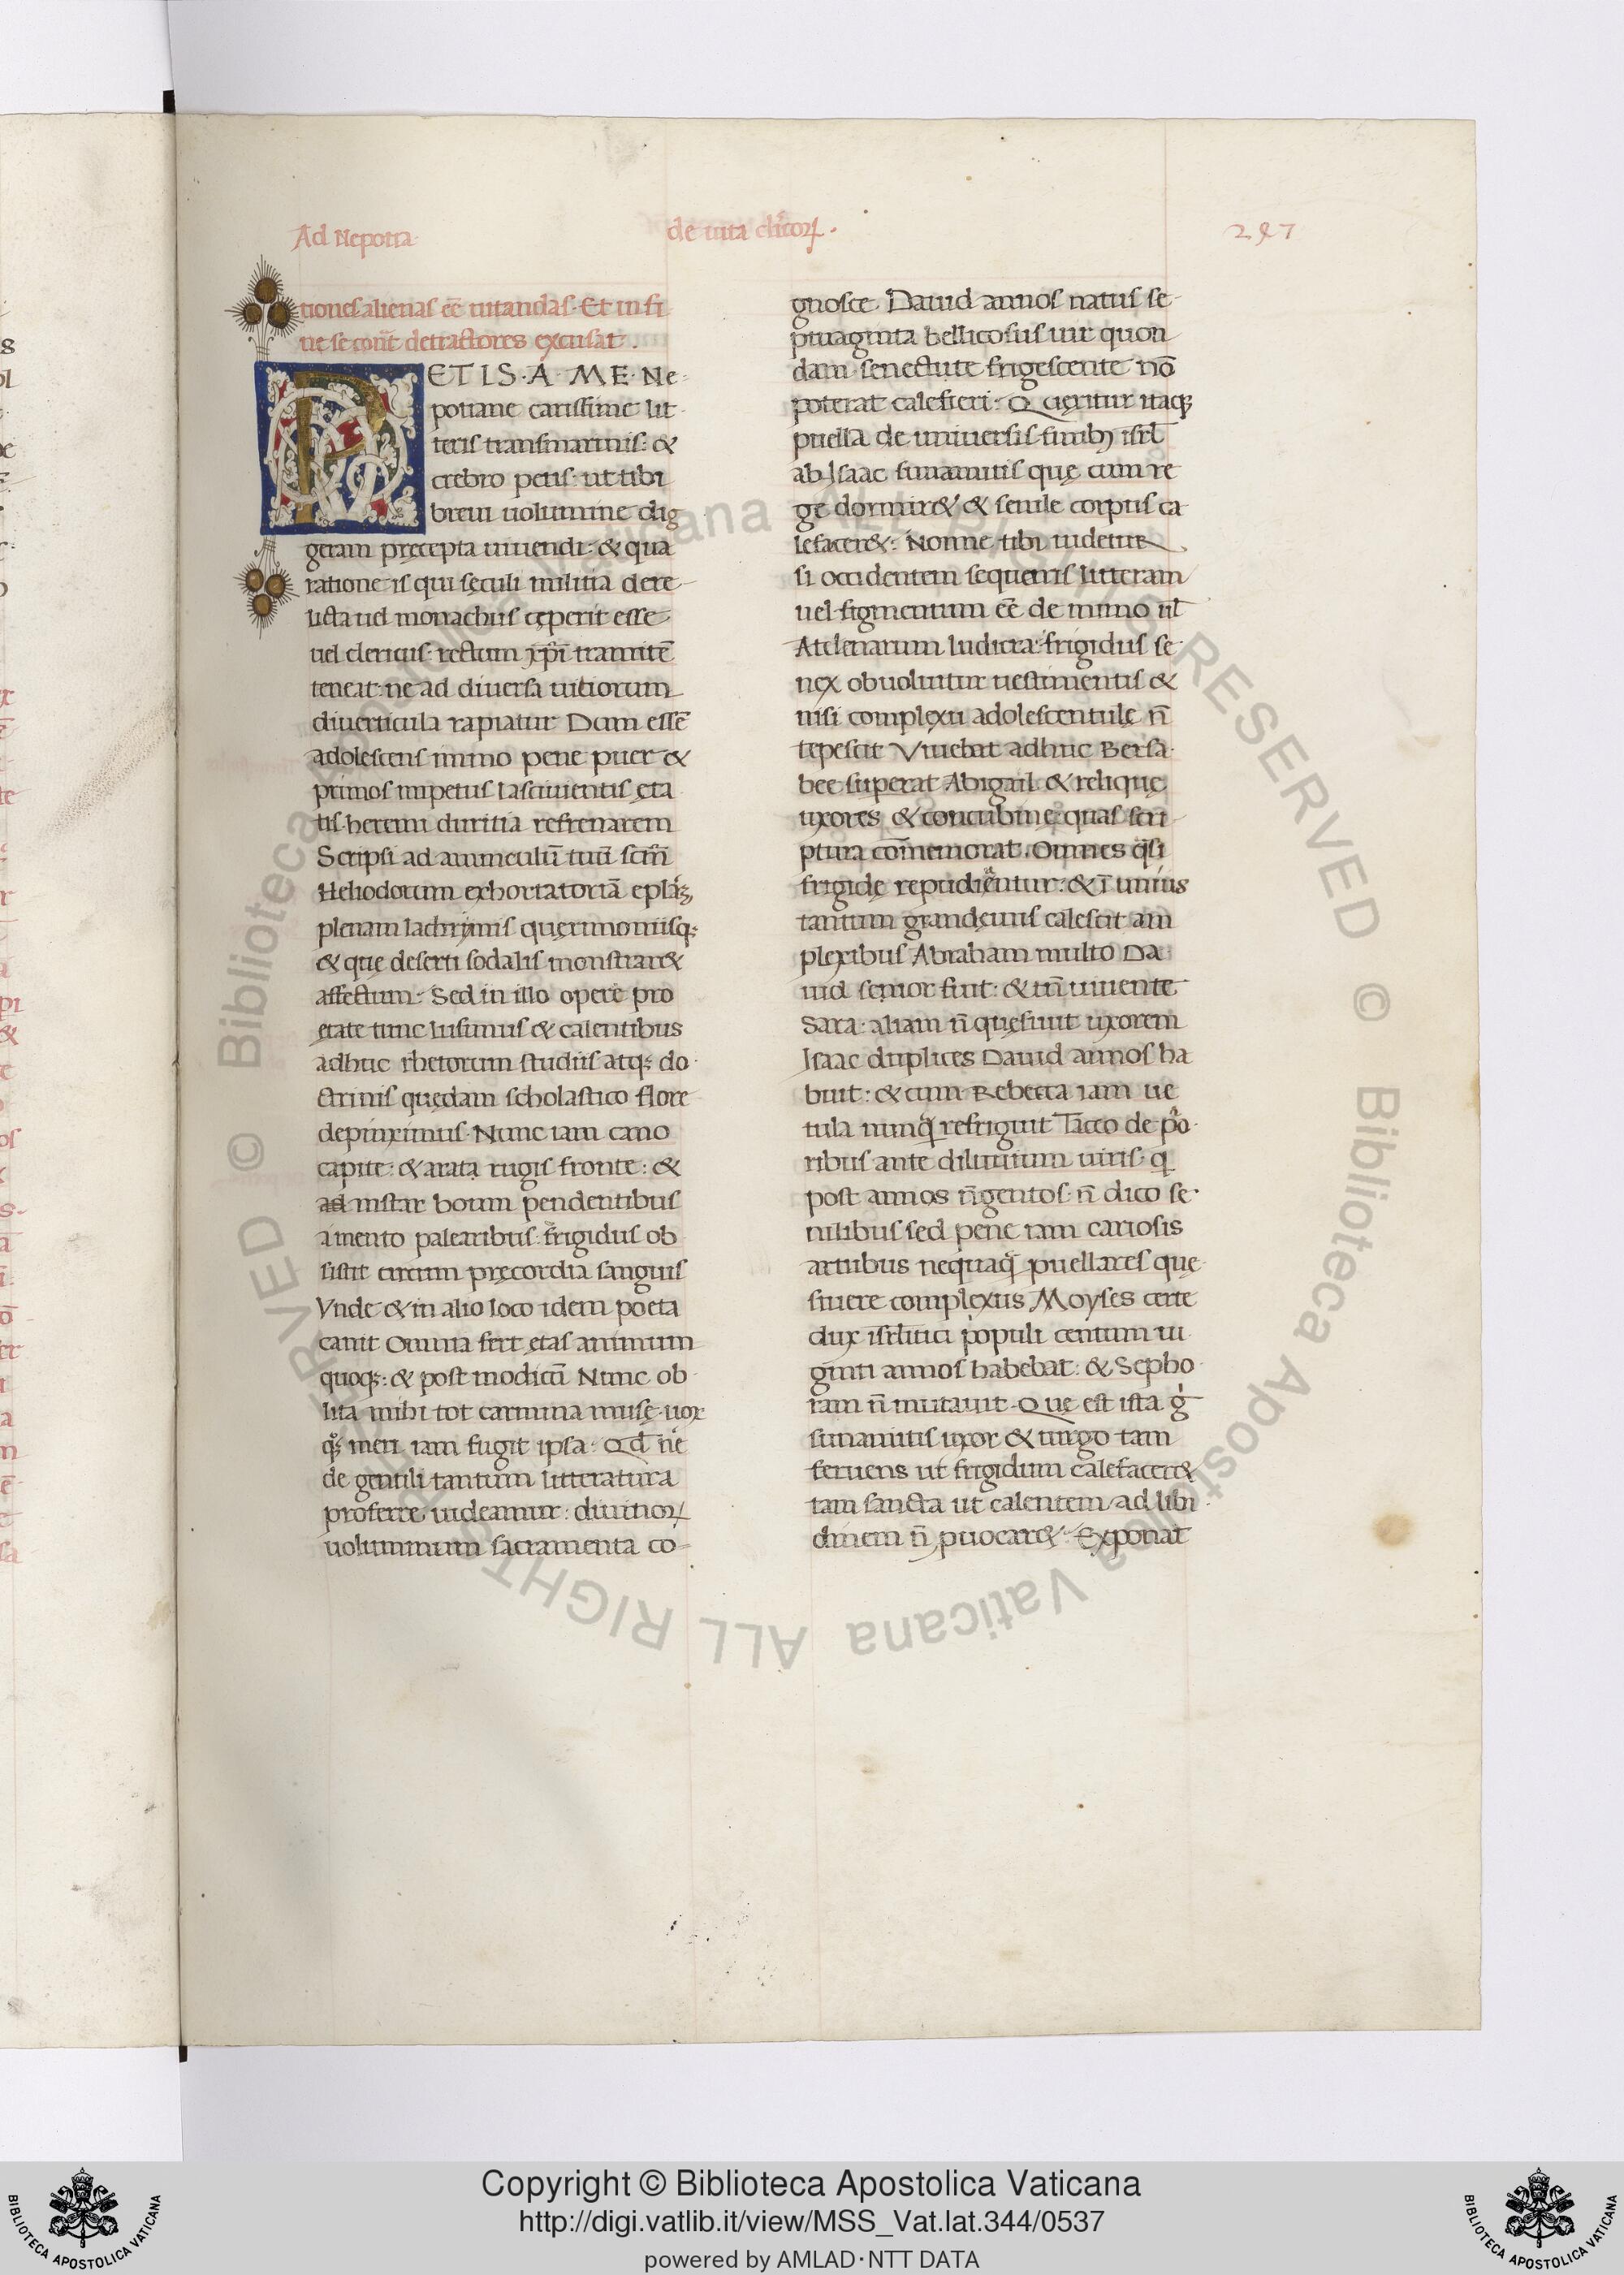 Ad Nepotia
de uita cl̅icoꝝ.
297
tiones alienas ee̅ uitandas. Et in fi
ne se cont̅ detractores excusat.
PETIS. A. ME. Ne-
potiane carissime lit
teris transmarinis: &
crebro petis: ut tibi
breui uolumine dig
geram pręcepta uiuendi: & qua
ratione is qui sęculi militia dere-
licta uel monachus cęperit esse
uel clericus: rectum xp̅i tramite̅
teneat: ne ad diuersa uitiorum
diuerticula rapiatur Dum esse̅
adolescens immo pene puer &
primos impetus lasciuientis ęta
tis. heremi duritia refrenarem
Scripsi ad auunculu̅ tuu̅ scm̅
Heliodorum exhortatoria̅ epl̅aꝫ
plenam lachrymis querimoniisqꝫ
& quę deserti sodalis monstrar&
affectum. Sed in illo opere pro
ętate tunc lusimus & calentibus
adhuc rhetorum studiis atqꝫ do
ctrinis quędam scholastico flore
depinximus. Nunc iam cano
capite: & arata rugis fronte: &
ad instar boum pendentibus
a mento palearibus. frigidus ob
sistit circum pręcordia sanguis
Vnde & in alio loco idem poeta
canit Omnia fert ętas animum
quoqꝫ: & post modicu̅ Nunc ob
lita mihi tot carmina musę. uox
qꝫ meri iam fugit ipsa: Qd̅ ne
de gentili tantum litteratura
proferre uideamur: diuinoꝝ
uoluminum sacramenta co-
gnosce. Dauid annos natus se-
ptuaginta bellicosus uir quon
dam senectute frigescente no̅
poterat calefieri. Quęritur itaqꝫ
puella de uniuersis finibꝫ isrl̅
abIsaac sunamitis quę cum re
ge dormir& & senile corpus ca
lefacer&: Nonne tibi uidetur
si occidentem sequeris litteram
uel figmentum ee̅ de mimo ul̅
Atelenarum ludicra: frigidus se
nex obuoluitur uestimentis &
nisi complexu adolescentulę n̅
tepescit Viuebat adhuc Bersa
bee superat Abigail & reliquę
uxores & concubinę quas scri
ptura co̅memorat. Omnes q̅si
frigidę repudientur: & i̅ unius
tantum grandęuus calescit am
plexibus Abraham multo Da
uid senior fuit: & tn̅ uiuente
Sara. aliam n̅ quęsiuit uxorem
Isaac duplices Dauid annos ha
buit: & cum Rebecca iam ue
tula nunq̅ refriguit Taceo de p̅o
ribus ante diluuium uiris. q
post annos n̅gentos. n̅ dico se
nilibus sed pene iam cariosis
artubus nequaq̅ puellares quę
siuere complexus Moyses certe
dux isrlitici populi centum ui
ginti annos habebat: & Sepho
ram n̅ mutauit. Quę est ista g̅
sunamitis uxor & uirgo tam
feruens ut frigidum calefacer&
tam sancta ut calentem ad libi
dinem n̅ ꝓuocar&. Exponat
© Biblioteca Apostolica Vaticana ALL RIGHTS RESERVED © Biblioteca Apostolica Vaticana ALL RIGHTS RESERVED
Copyright © Biblioteca Apostolica Vaticana
http://digi.vatlib.it/view/MSS_Vat.lat.344/0537
powered by AMLAD·NTT DATA
BIBLIOTECA APOSTOLICA VATICANA
BIBLIOTECA APOSTOLICA VATICANA